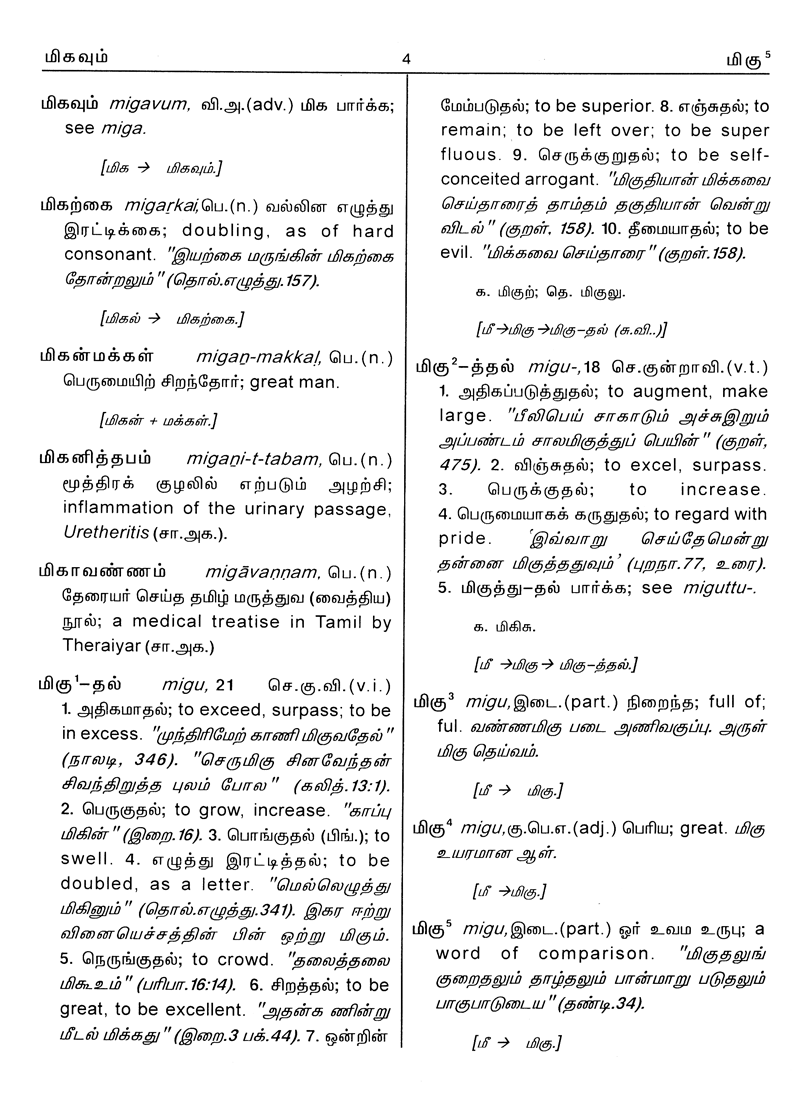 மிகவும் 4 மிகு⁵
மிகவும் migavum, வி.அ.(adv.) மிக பார்க்க;
see miga.
[மிக → மிகவும்.]
மிகற்கை migaṟkai,பெ.(n.) வல்லின எழுத்து
இரட்டிக்கை; doubling, as of hard
consonant. "இயற்கை மருங்கின் மிகற்கை
தோன்றலும்" (தொல்.எழுத்து.157).
[மிகல் → மிகற்கை.]
மிகன்மக்கள் migaṉ-makkaḷ, பெ.(n.)
பெருமையிற் சிறந்தோர்; great man.
[மிகன் + மக்கள்.]
மிகனித்தபம் migaṉi-t-tabam, பெ.(n.)
மூத்திரக் குழலில் எற்படும் அழற்சி;
inflammation of the urinary passage,
Uretheritis (சா.அக.).
மிகாவண்ணம் migāvaṇṇam, பெ.(n.)
தேரையர் செய்த தமிழ் மருத்துவ (வைத்திய)
நூல்; a medical treatise in Tamil by
Theraiyar (சா.அக.)
மிகு¹–தல் migu, 21 செ.கு.வி.(v.i.)
1. அதிகமாதல்; to exceed, surpass; to be
in excess. "முந்திரிமேற் காணி மிகுவதேல்"
(நாலடி, 346). "செருமிகு சினவேந்தன்
சிவந்திறுத்த புலம் போல" (கலித்.13:1).
2. பெருகுதல்; to grow, increase. "காப்பு
மிகின்" (இறை.16). 3. பொங்குதல் (பிங்.); to
swell. 4. எழுத்து இரட்டித்தல்; to be
doubled, as a letter. "மெல்லெழுத்து
மிகினும்" (தொல்.எழுத்து.341). இகர ஈற்று
வினையெச்சத்தின் பின் ஒற்று மிகும்.
5. நெருங்குதல்; to crowd. "தலைத்தலை
மிகூஉம்" (பரிபா.16:14). 6. சிறத்தல்; to be
great, to be excellent. "அதன்க ணின்று
மீடல் மிக்கது" (இறை.3 பக்.44). 7. ஒன்றின்
மேம்படுதல்; to be superior. 8. எஞ்சுதல்; to
remain; to be left over; to be super
fluous. 9. செருக்குறுதல்; to be self-
conceited arrogant. "மிகுதியான் மிக்கவை
செய்தாரைத் தாம்தம் தகுதியான் வென்று
விடல்" (குறள், 158). 10. தீமையாதல்; to be
evil. "மிக்கவை செய்தாரை" (குறள்.158).
க. மிகுற்; தெ. மிகுலு.
[மீ→மிகு→மிகு–தல் (சு.வி..)]
மிகு²–த்தல் migu-,18 செ.குன்றாவி.(v.t.)
1. அதிகப்படுத்துதல்; to augment, make
large. "பீலிபெய் சாகாடும் அச்சுஇறும்
அப்பண்டம் சாலமிகுத்துப் பெயின்" (குறள்,
475). 2. விஞ்சுதல்; to excel, surpass.
3. பெருக்குதல்; to increase.
4. பெருமையாகக் கருதுதல்; to regard with
pride. 'இவ்வாறு செய்தேமென்று
தன்னை மிகுத்ததுவும்' (புறநா.77, உரை).
5. மிகுத்து–தல் பார்க்க; see miguttu-.
க. மிகிசு.
[மீ →மிகு→ மிகு–த்தல்.]
மிகு³ migu,இடை.(part.) நிறைந்த; full of;
ful. வண்ணமிகு படை அணிவகுப்பு. அருள்
மிகு தெய்வம்.
[மீ → மிகு.]
மிகு⁴ migu,கு.பெ.எ.(adj.) பெரிய; great. மிகு
உயரமான ஆள்.
[மீ →மிகு.]
மிகு⁵ migu,இடை.(part.) ஓர் உவம உருபு; a
word of comparison. "மிகுதலுங்
குறைதலும் தாழ்தலும் பான்மாறு படுதலும்
பாகுபாடுடைய" (தண்டி.34).
[மீ → மிகு.]